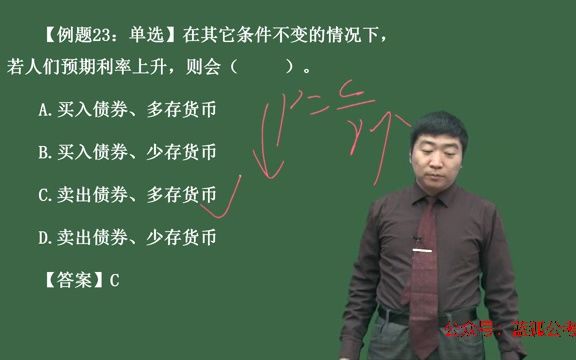 【例题23：单选】在其它条件不变的情况下，
若人们预期利率上升，则会（　　）。
A.买入债券、多存货币
B.买入债券、少存货币
C.卖出债券、多存货币
D.卖出债券、少存货币
【答案】C
P=C/r
公众号：
公考